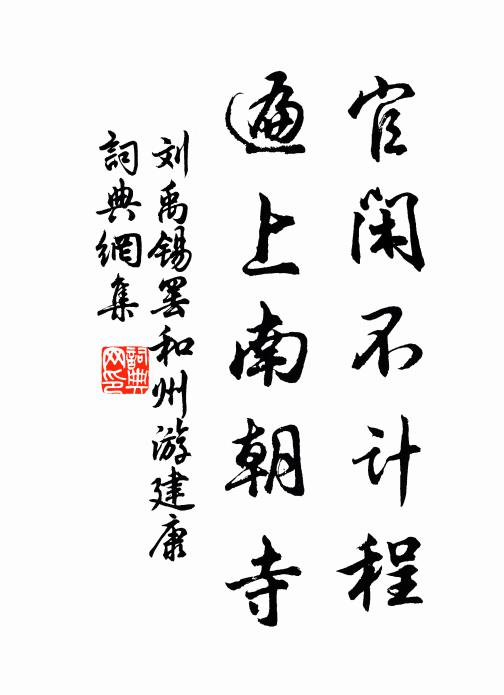 官闲不计程
遍上南朝寺
刘禹锡罢和州游建康
詞典網集
詞典网印